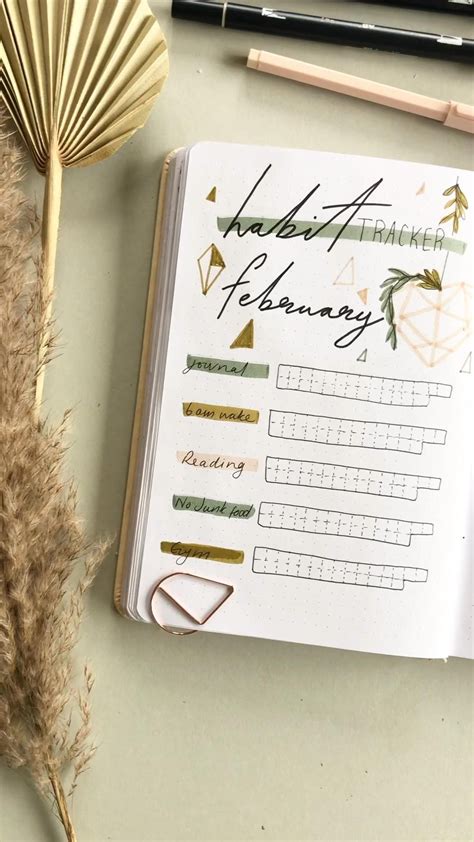 habit TRACKER
february
Journal
6am wake
Reading
No Junk food
Gym